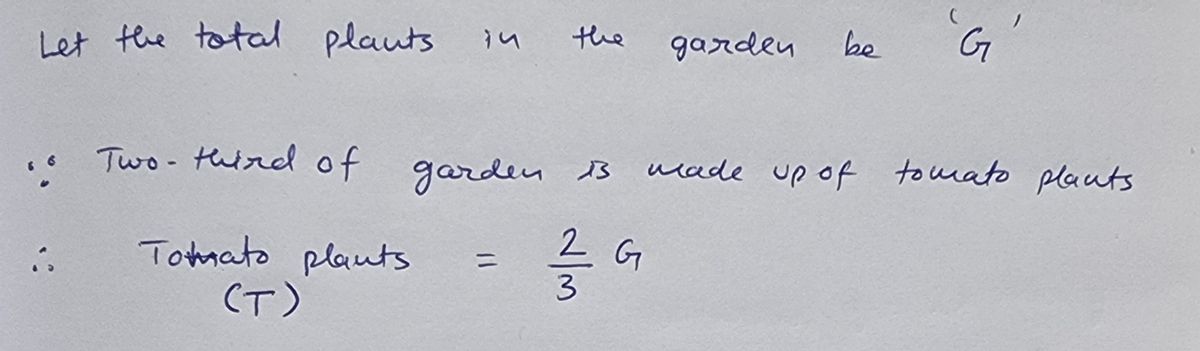 Let the total plants in the garden be 'G'
∵ Two-third of garden is made up of tomato plants
∴ Tomato plants = 2/3 G
(T)